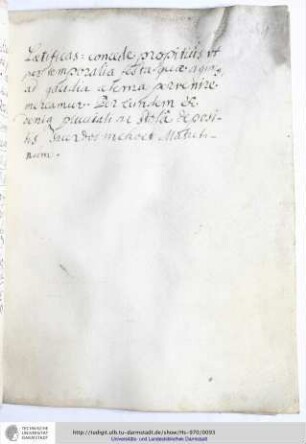 Lætificas: concede propitius vt
per temporalia festa quæ agim9
ad gaudia æterna pervenire
mereamur. Per eundem &c
pluuiali ac stola deposi-
tis Sacerdos inchoet Matuti-
num.
TECHNISCHE
UNIVERSITÄT
DARMSTADT
http://tudigit.ulb.tu-darmstadt.de/show/Hs-970/0093
Universitäts- und Landesbibliothek Darmstadt